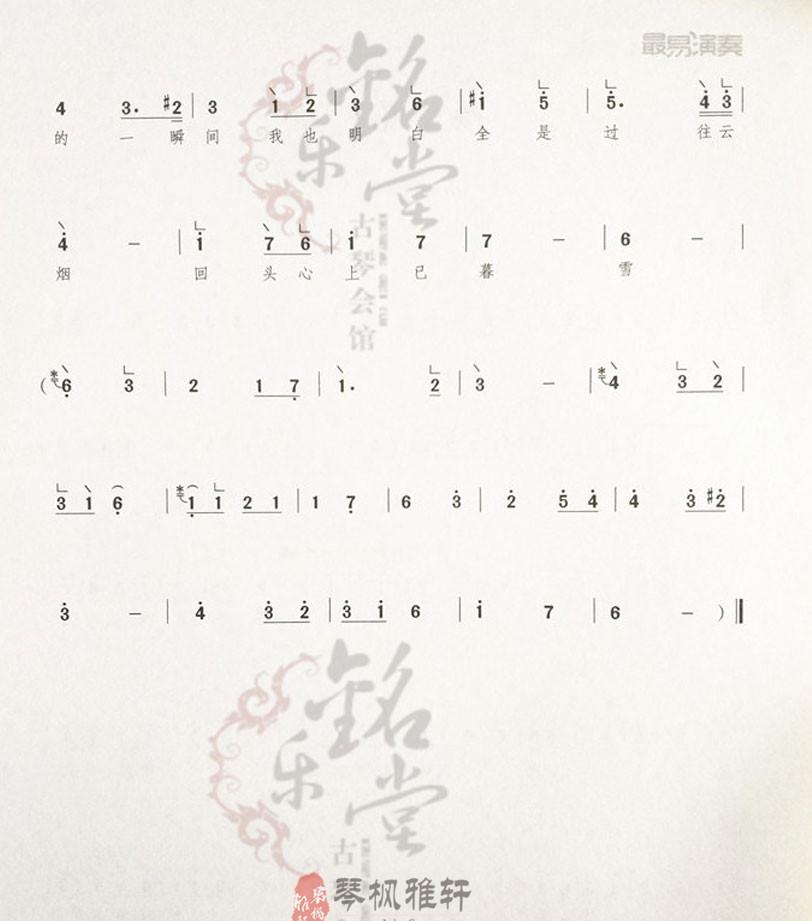 最易演奏
4 3. #2 | 3 1 2 | 3 6 | #1 5 | 5. 4 3 |
的 一 瞬 间 我 也 明 白 全 是 过 往 云
4 – | 1 7 6 | 1 7 | 7 – | 6 – |
烟 回 头 心 上 已 暮 雪
( 6 3 | 2 1 7 | 1. 2 | 3 – | 4 3 2 |
3 1 6 | 1 1 2 1 | 1 7 | 6 3 | 2 5 4 | 4 3 #2 |
3 – | 4 3 2 | 3 1 6 | 1 7 | 6 – ) ‖
铭
乐
堂
古琴会馆
铭
乐
堂
古
琴枫雅轩